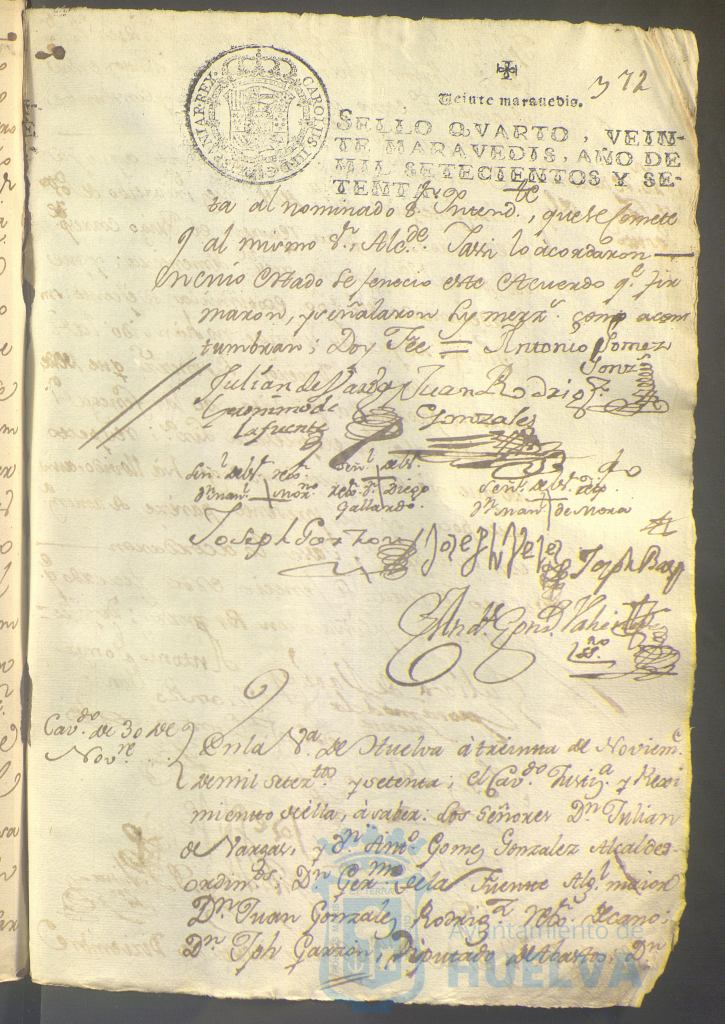 372
Veinte marauedis.
SELLO QVARTO, VEIN-
TE MARAVEDIS, AÑO DE
MIL SETECIENTOS Y SE-
TENTA.
CAROLUS III D G HISPANIAR REX
ta al nominado Sr. Intend.te, que se somete
al mismo Sr. Alc.de. Y assi lo acordaron
En cuio estado se fenecio este Acuerdo q.e fir
maron, y señalaron Sus merz.s como acos
tumbran; Doy Fee = Antonio Gomez
Gonz.s
Julian de Varg.s Juan Rodrig.z
Geronimo de Gonzales
la fuente
Señ.l de st. Señ.l de st. Señ.l de st. Dip.
Dn Man.l Dn. Diego Dn Man.l de Mora
Gallardo.
Joseph Garzon Joseph Velez Joseph
And.s Gonz.
Ss.no
Cav.do de 30 de
Nov.re
En la V.a de Huelva à treinta de Noviem.e
de mil setez.tos y setenta; el Cav.do Justiz.a y Rexi
miento de ella, à saber: Los Señores Dn Julian
de Vargas, y Dn Ant.o Gomez Gonzalez Alcaldes
ordin.os: Dn Ger.mo de la Fuente Alg.l maior
Dn Juan Gonzalez Rodrig.z Reg.r Decano;
Dn Jph Garzòn, Diputado de Abastos; Dn
Ayuntamiento de
HUELVA